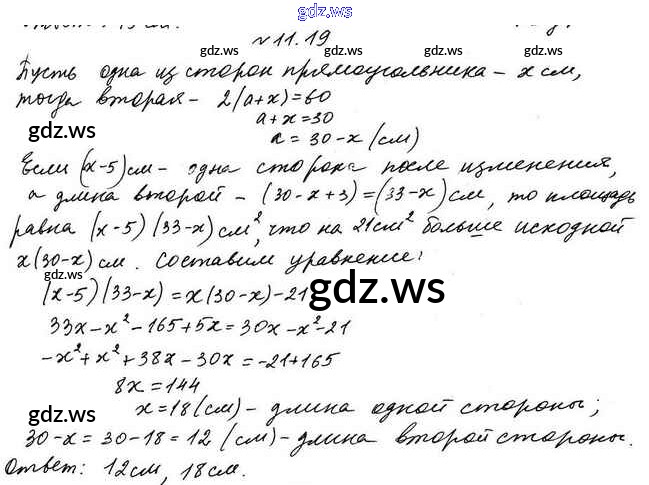 gdz.ws
gdz.ws gdz.ws gdz.ws
№ 11.19
Пусть одна из сторон прямоугольника – x см,
тогда вторая – 2(a+x)=60
a+x=30
gdz.ws gdz.ws gdz.ws
a=30-x (см)
Если (x-5)см – одна сторона после изменения,
а длина второй – (30-x+3)=(33-x)см, то площадь
gdz.ws gdz.ws gdz.ws
равна (x-5)(33-x)см², что на 21см² больше исходной
x(30-x)см. Составим уравнение:
gdz.ws gdz.ws
(x-5)(33-x)=x(30-x)-21
gdz.ws
33x-x²-165+5x=30x-x²-21
gdz.ws gdz.ws
-x²+x²+38x-30x=-21+165
8x=144
x=18(см)-длина одной стороны;
gdz.ws gdz.ws gdz.ws
30-x=30-18=12 (см)-длина второй стороны.
Ответ: 12см, 18см.
gdz.ws gdz.ws